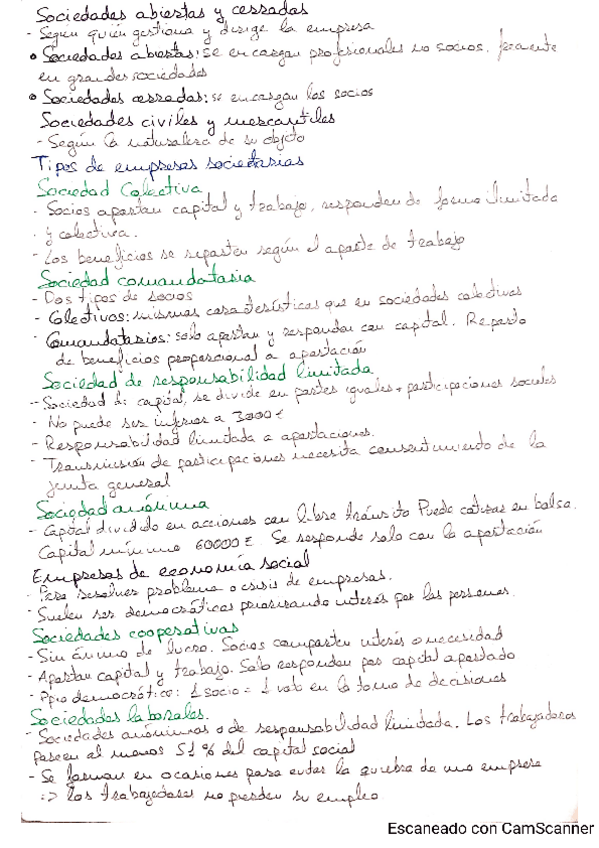 Sociedades abiertas y cerradas
- Según quién gestiona y dirige la empresa
• Sociedades abiertas: se encargan profesionales no socios. frecuente
en grandes sociedades
• Sociedades cerradas: se encargan los socios
Sociedades civiles y mercantiles
- Según la naturaleza de su objeto
Tipos de empresas societarias
Sociedad Colectiva
- Socios aportan capital y trabajo, responden de forma ilimitada
- y colectiva.
- Los beneficios se reparten según el aporte de trabajo
Sociedad comandataria
- Dos tipos de socios
- Colectivos: mismas características que en sociedades colectivas
- Comandatarios: solo aportan y responden con capital. Reparto
de beneficios proporcional a aportación
Sociedad de responsabilidad limitada
- Sociedad de capital, se divide en partes iguales → participaciones sociales
- No puede ser inferior a 3000€
- Responsabilidad limitada a aportaciones.
- Transmisión de participaciones necesita consentimiento de la
junta general
Sociedad anónima
- Capital dividido en acciones con libre tránsito Puede cotizar en bolsa.
Capital mínimo 60000€. Se responde solo con la aportación
Empresas de economía social
- Para resolver problema o crisis de empresas.
- Suelen ser democráticas priorizando interés por las personas.
Sociedades cooperativas
- Sin ánimo de lucro. Socios comparten interés o necesidad
- Aportan capital y trabajo. Solo responden por capital aportado
- Ppio democrático: 1 socio = 1 voto en la toma de decisiones
Sociedades laborales.
- Sociedades anónimas o de responsabilidad limitada. Los trabajadores
poseen al menos 51% del capital social
- Se forman en ocasiones para evitar la quiebra de una empresa
=> los trabajadores no pierden su empleo
Escaneado con CamScanner